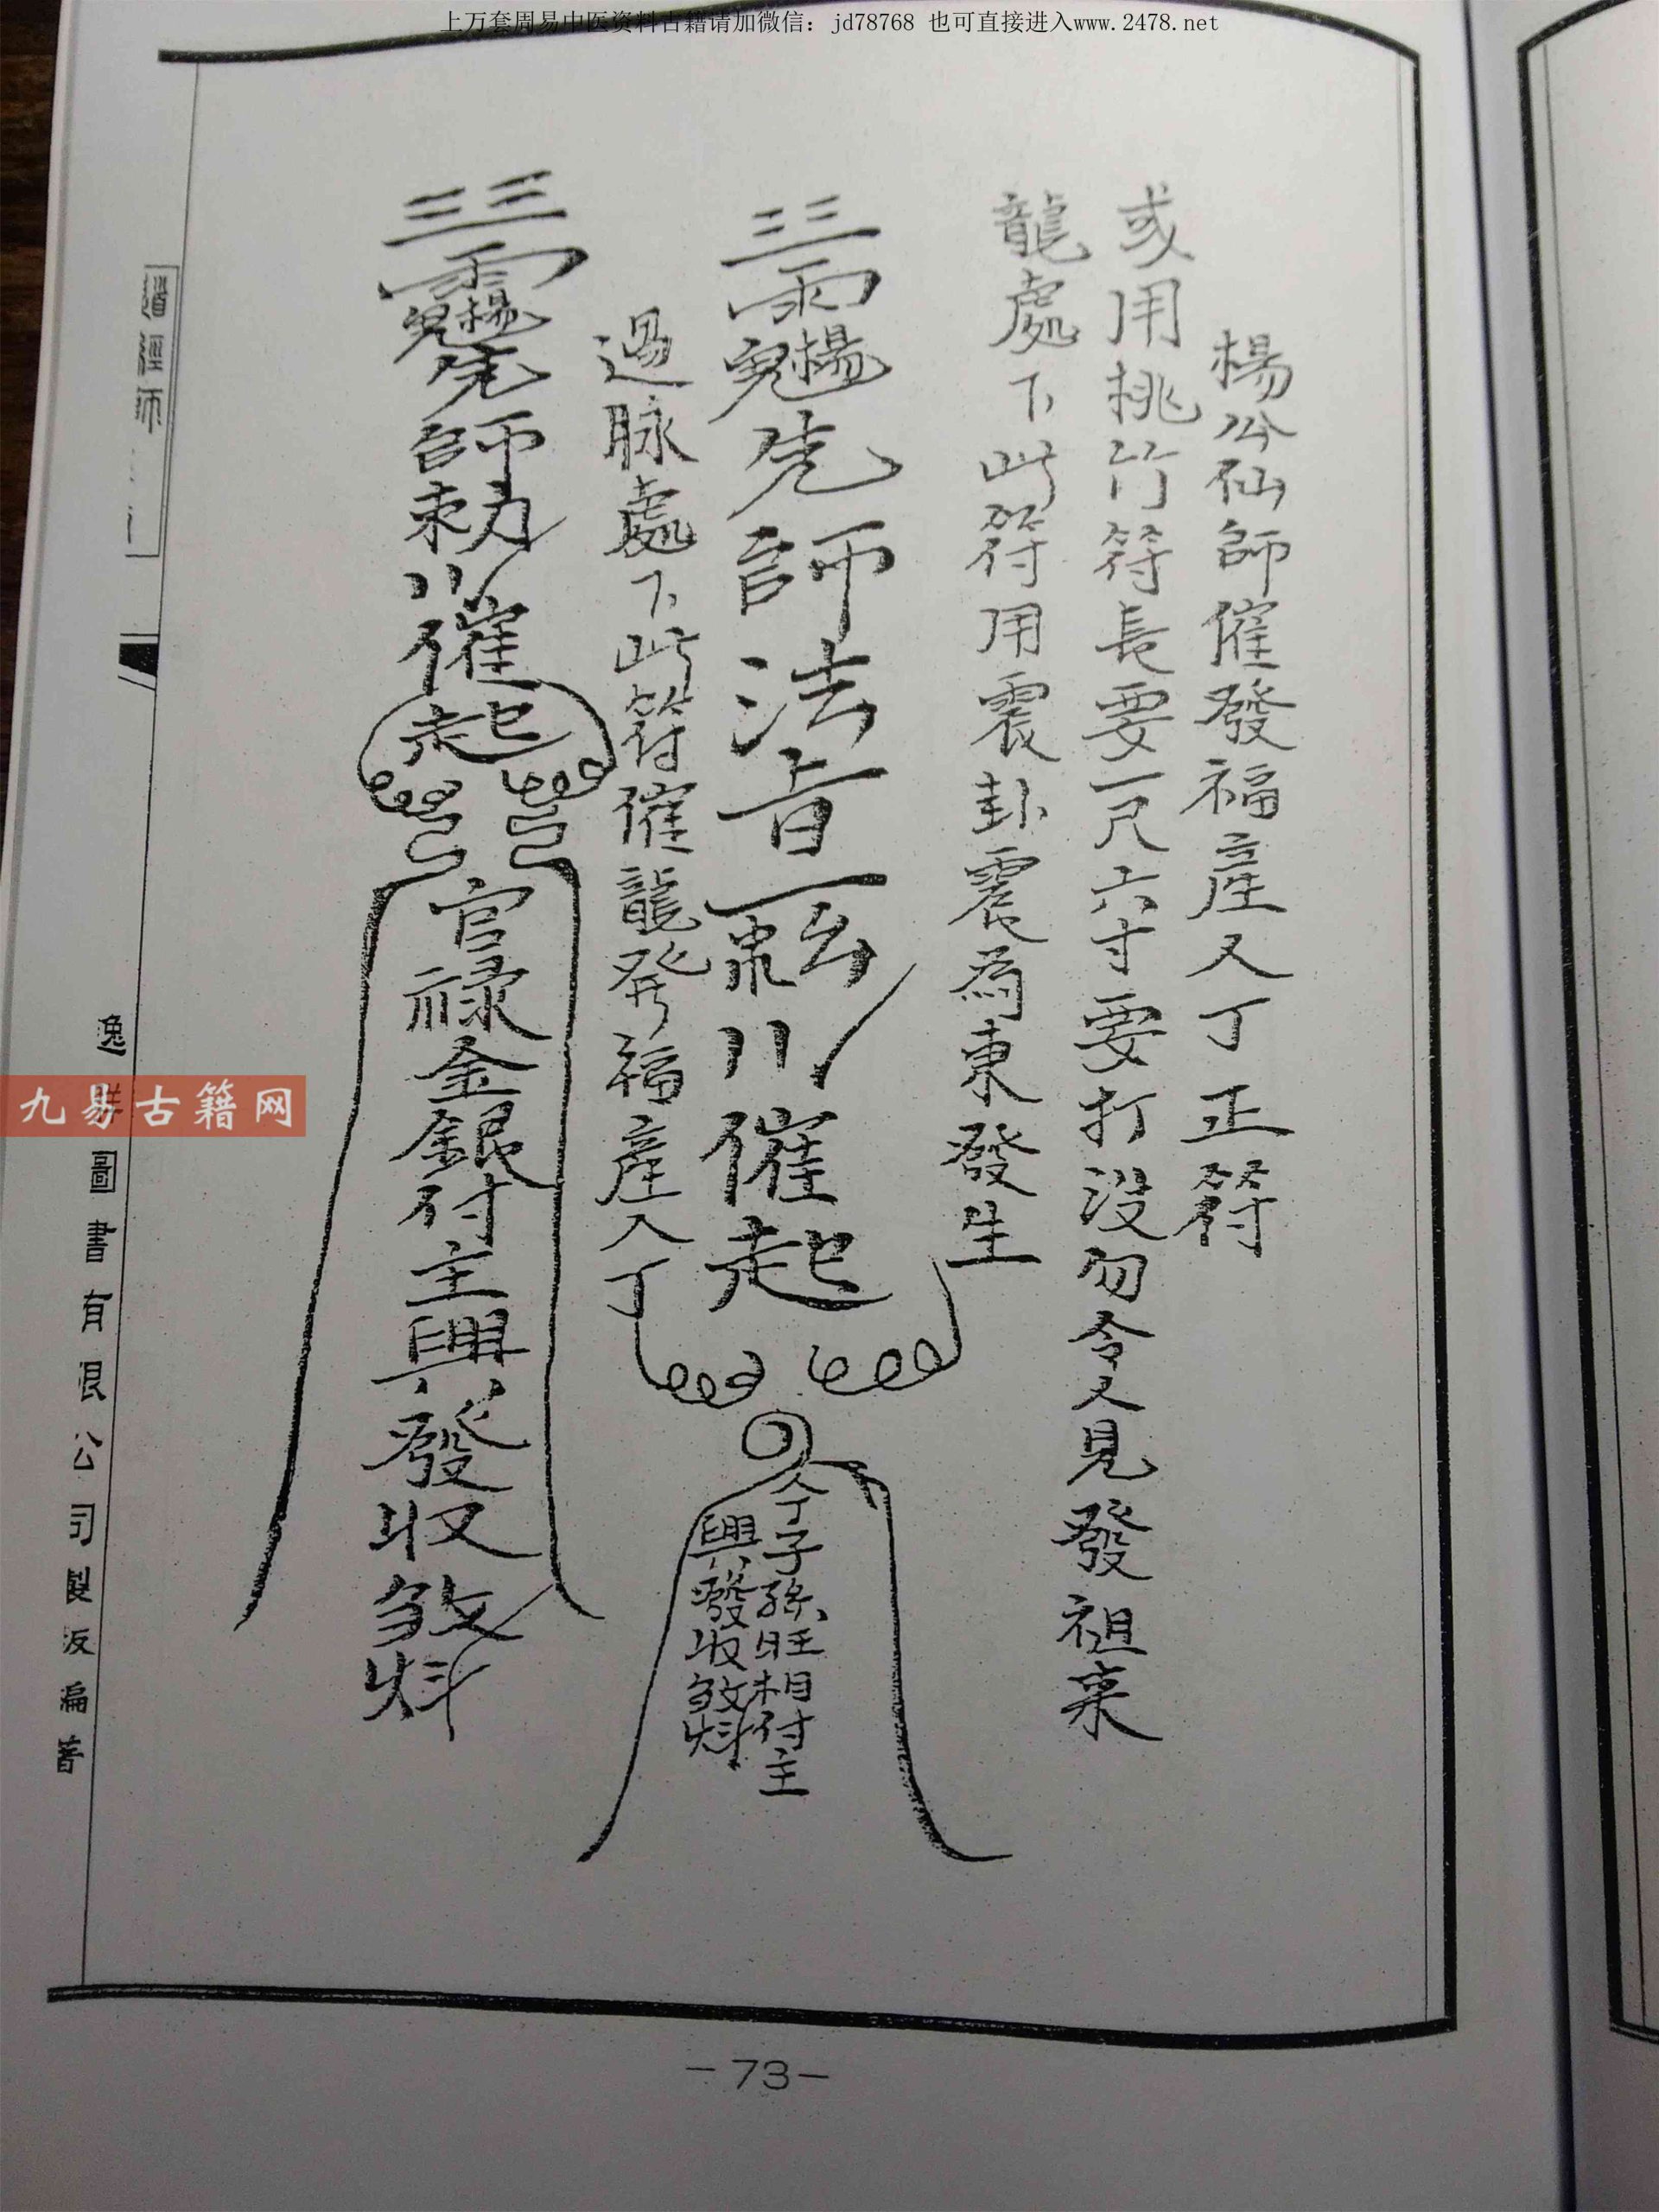 上万套周易中医资料古籍请加微信：jd78768 也可直接进入www.2478.net
楊公仙師催發福產人丁正符
或用桃竹符長要一尺六寸要打沒勿令人見發祖來
龍處下此符用震卦震為東發生
先師法旨
催起
令子孫旺相付主
興發收煞
過脉處下此符催龍発福產人丁
先師勅
催起
官禄金銀付主興發收煞
道經師
逸群圖書有限公司製版編著
九易古籍网
-73-